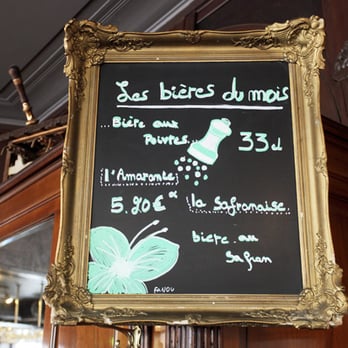 Les bières du mois
...Bière aux
Poivres...
33cl
l'Amarante
5.20€
la Safranaise
bière au
Safran